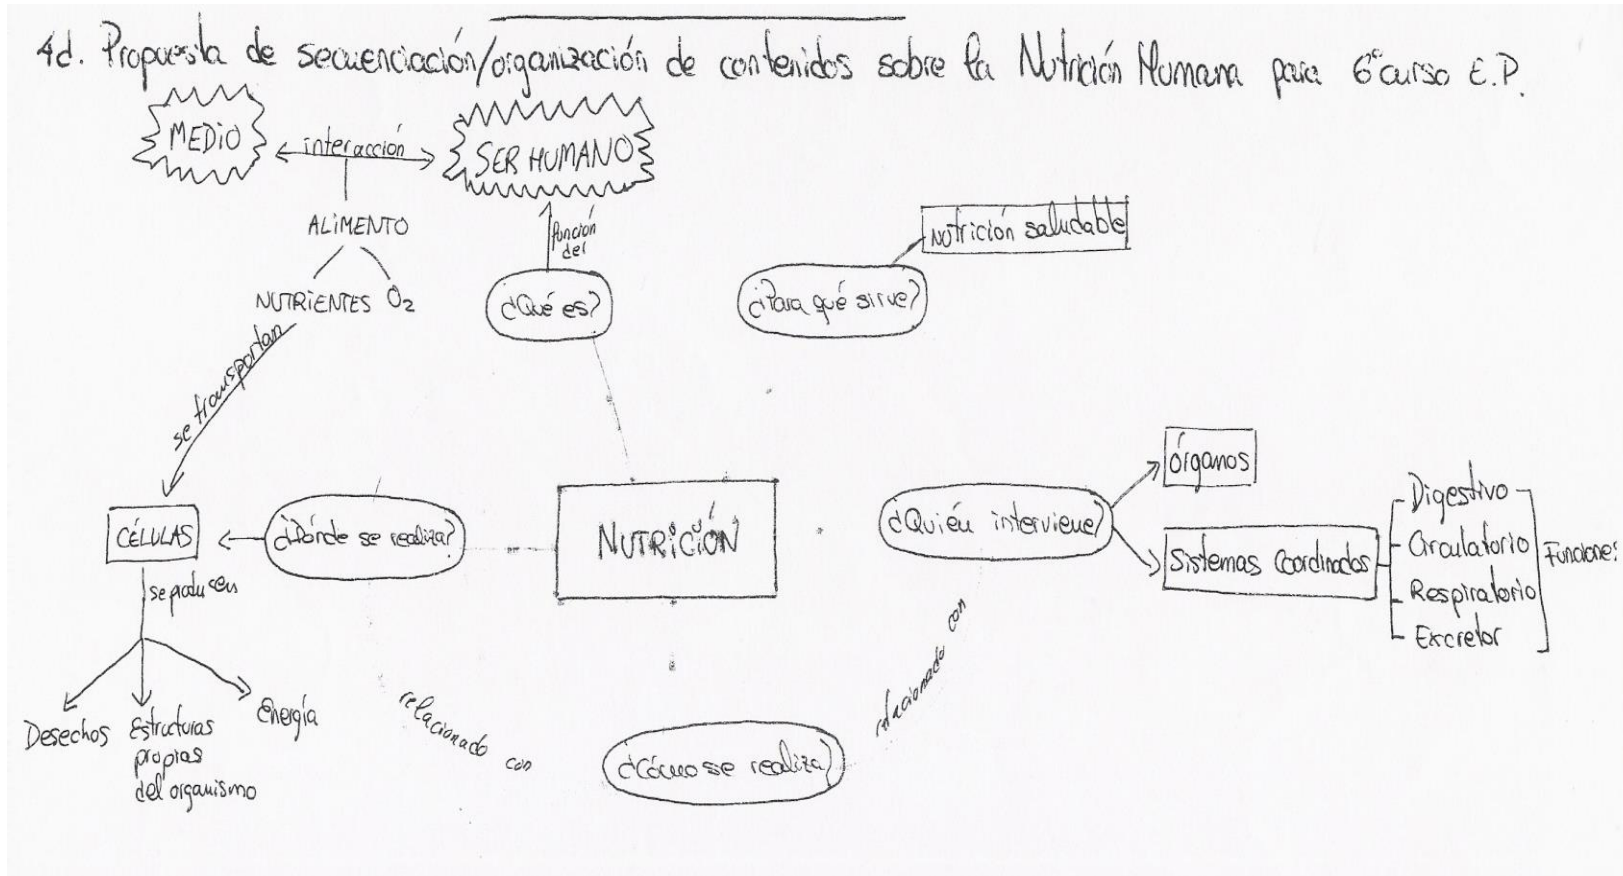 4d. Propuesta de secuenciación/organización de contenidos sobre la Nutrición Humana para 6º curso E.P.
MEDIO
interacción
SER HUMANO
ALIMENTO
NUTRIENTES O₂
función
del
¿Qué es?
¿Para qué sirve?
Nutrición saludable
se transportan
CÉLULAS
¿Dónde se realiza?
NUTRICIÓN
¿Quién interviene?
órganos
Sistemas Coordinados
Digestivo
Circulatorio
Respiratorio
Excretor
Funciones
se producen
Desechos
Estructuras
propias
del organismo
Energía
relacionado con
¿Cómo se realiza?
relacionado con